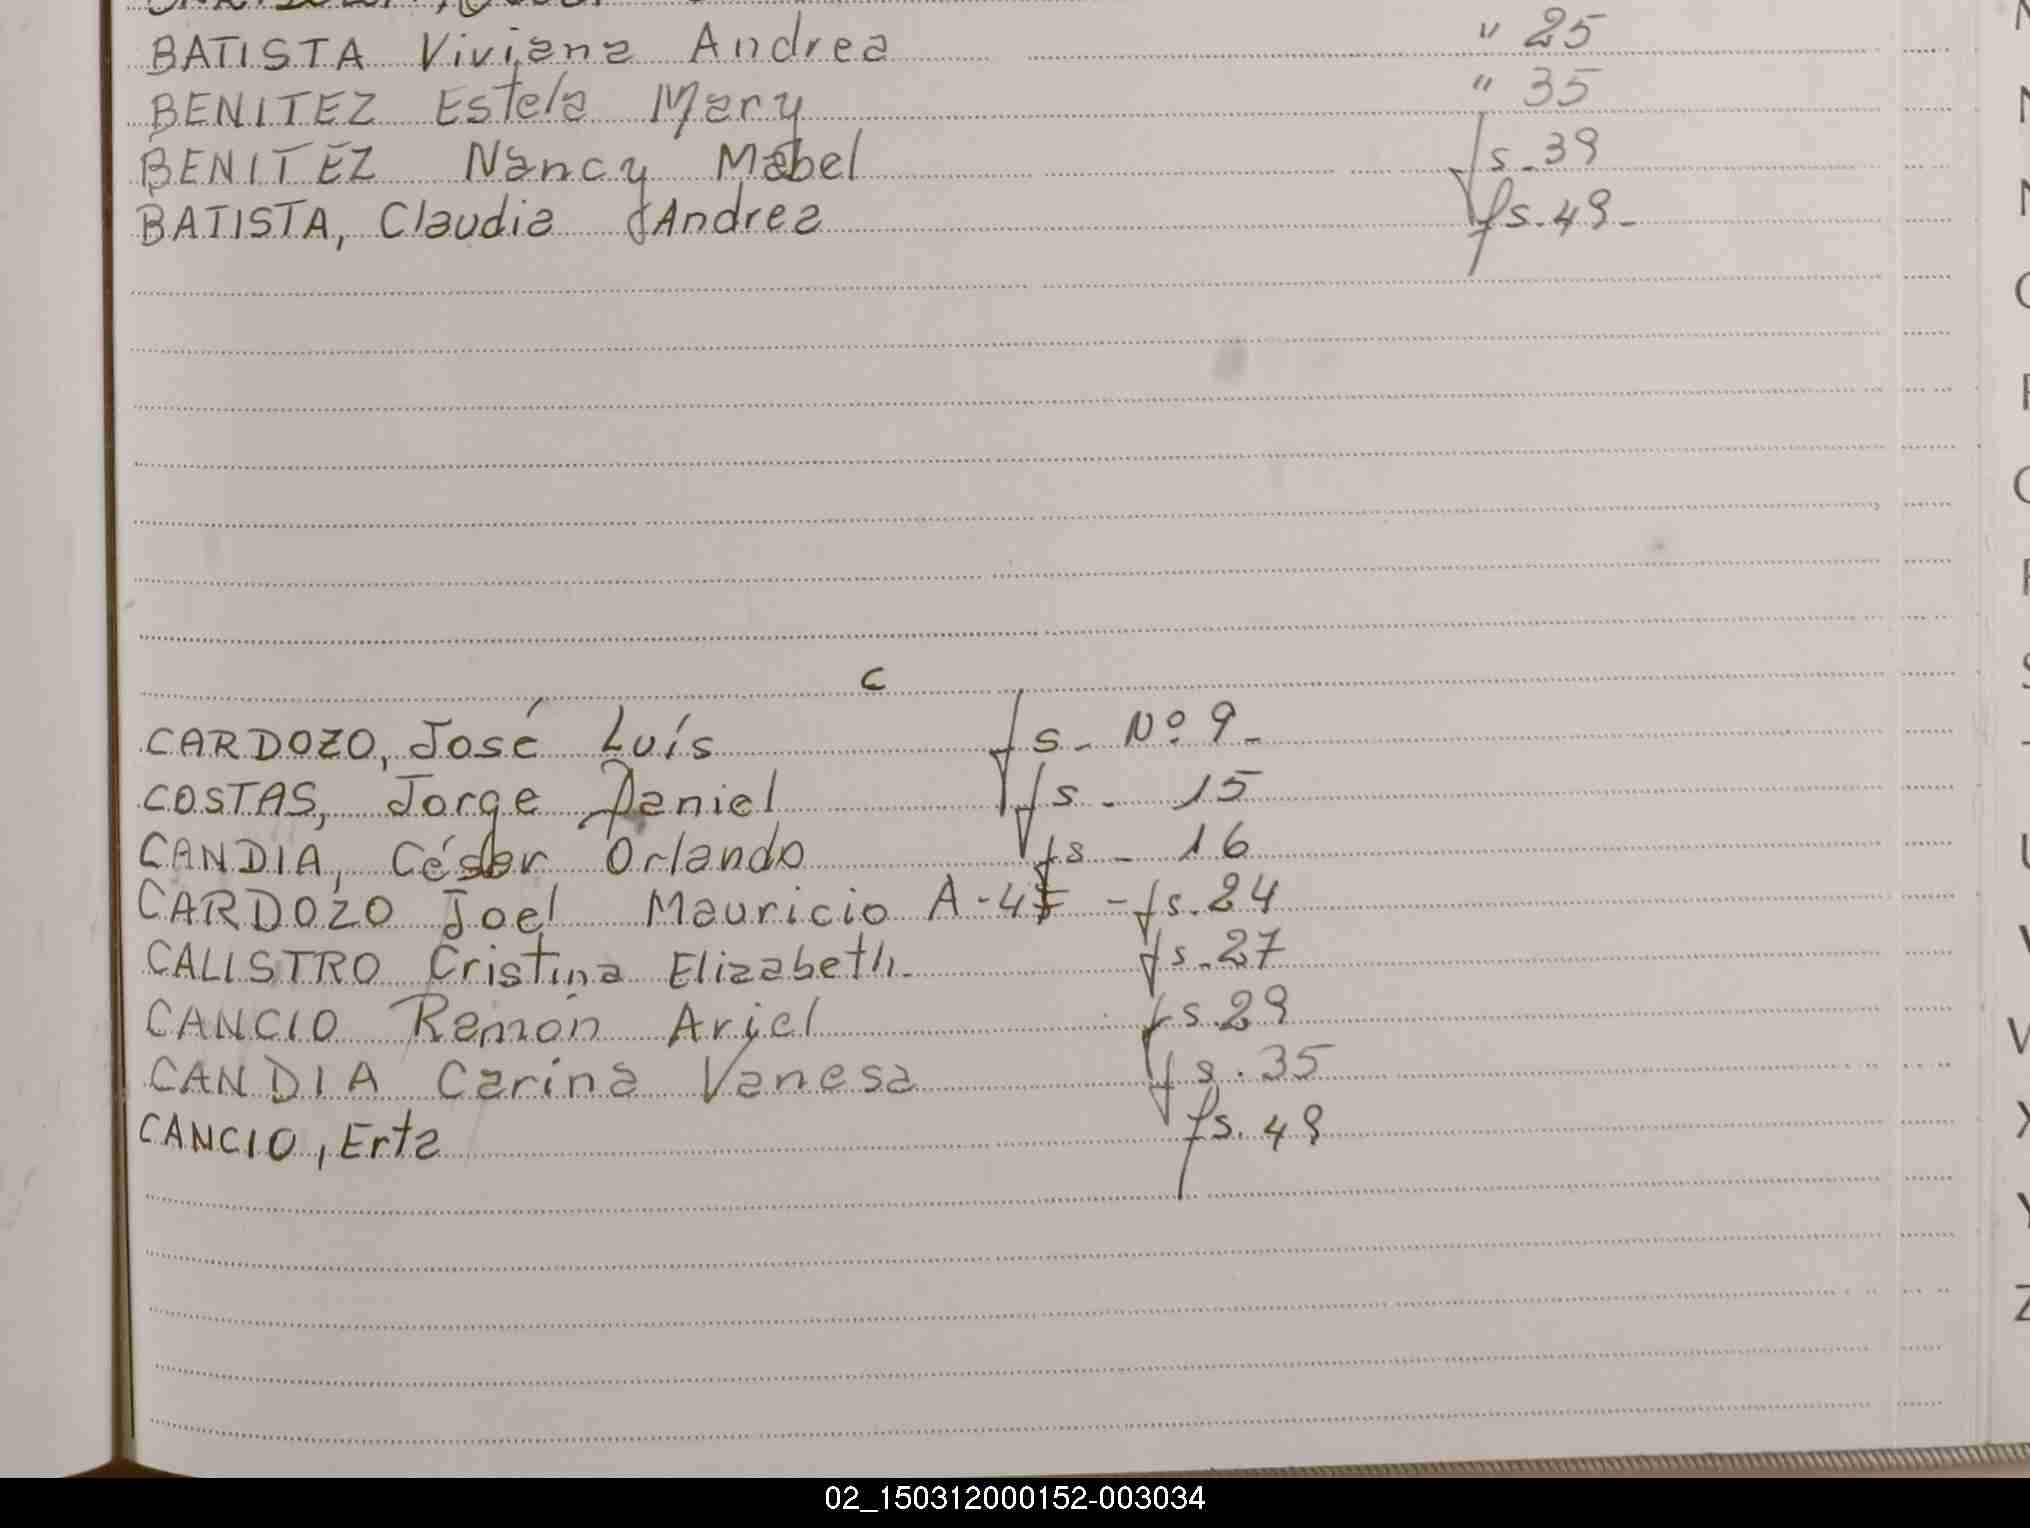 BATISTA Viviana Andrea " 25
BENITEZ Estela Mary " 35
BENITEZ Nancy Mabel fs. 39
BATISTA, Claudia Andrea fs. 49-
C
CARDOZO, José Luís fs - Nº 9 -
COSTAS, Jorge Daniel fs - 15
CANDIA, César Orlando fs - 16
CARDOZO Joel Mauricio A-47 - fs. 24
CALISTRO Cristina Elizabeth. fs. 27
CANCIO Ramón Ariel fs. 29
CANDIA Carina Vanesa fs. 35
CANCIO, Erta fs. 49
02_150312000152-003034